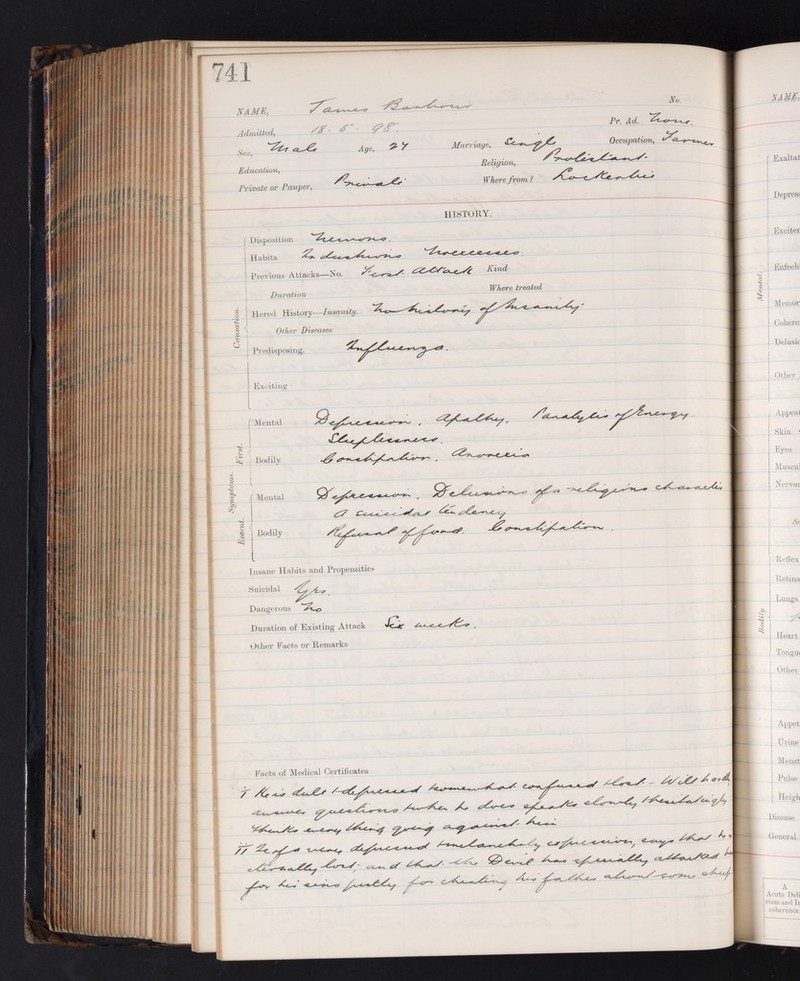 741
No.
NAME, James Barbour
Admitted, 18. 5. 98. Pr. Ad. None.
Sex, Male Age, 27 Marriage, Single Occupation, Farmer
Education, Religion, Protestant.
Private or Pauper, Private Where from? Lockerbie
HISTORY.
Disposition Nervous.
Habits Industrious
Previous Attacks—No. First Attack Kind
Duration Where treated
Hered History—Insanity. No history of Insanity
Other Diseases
Predisposing. Influenza.
Exciting
Causation.
Mental Depression. Apathy. Paralysis of Energy.
Sleeplessness.
Bodily Constipation. Anorexia
First.
Symptoms.
Mental Depression. Delusions of a religious character
A suicidal tendency
Bodily Refusal of food. Constipation.
Recent.
Insane Habits and Propensities
Suicidal Yes.
Dangerous No
Duration of Existing Attack Six weeks.
Other Facts or Remarks
Facts of Medical Certificates
I He is dull & depressed & somewhat confused & lost - Will hardly
answer questions & when he does speaks slowly & hesitatingly
Thinks every thing going against him
II He of a very depressed & melancholy expression, says that he is
eternally lost; and that the Devil has specially attacked
for his sins justly for cheating his father about some sheep
NAME,
Exaltat
Depres
Excite
Enfeeb
Memor
Cohere
Delusi
Other
Mental.
Appea
Skin
Eyes
Muscu
Nervou
Reflex
Retina
Lungs
Heart
Tongu
Other
Bodily
Appet
Urine
Menst
Pulse
Heigh
Disease
General
A
Acute Deli
rium and In
coherence